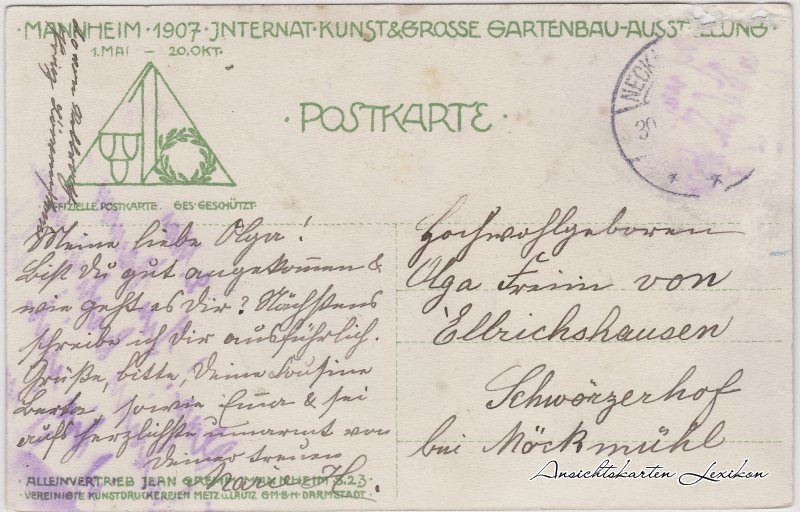 ·MANNHEIM·1907·INTERNAT·KUNST&GROSSE GARTENBAU-AUSSTELLUNG·
1.MAI – 20.OKT·
·POSTKARTE·
NECK
30
OFFIZIELLE POSTKARTE. GES·GESCHÜTZT·
Meine liebe Olga!
Bist du gut angekommen &
wie geht es dir? Nächstens
schreibe ich dir ausführlich.
Grüße, bitte, deine Cousine
Berta, sowie Emma & sei
aufs herzlichste umarmt von
Deiner treuen
Marie H.
Hochwohlgeboren
Olga Freiin von
Ellrichshausen
Schwörzerhof
bei Möckmühl
ALLEINVERTRIEB JEAN GREMM MANNHEIM S.23·
VEREINIGTE KUNSTDRUCKEREIEN METZ u.LAUTZ G·M·B·H·DARMSTADT·
Ansichtskarten Lexikon